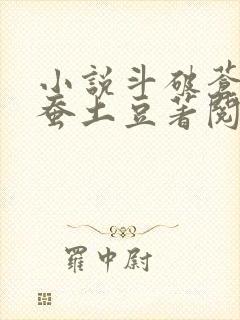 小説斗破蒼
蚕土豆著閱
羅中尉